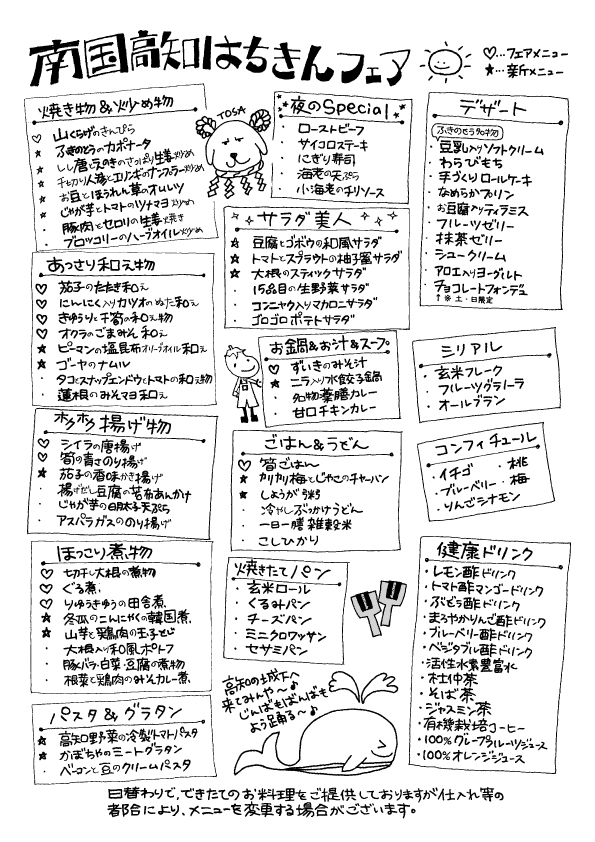 南国高知はちきんフェア
♡…フェアメニュー
★…新メニュー
焼き物&炒め物
♡ 山くらげのきんぴら
★ ふきのとうのカポナータ
★ しし唐とえのきのさっぱり生姜炒め
★ 千切り人参とエリンギのナンプラー炒め
★ お豆とほうれん草のオムレツ
★ じゃが芋とトマトのツナマヨ炒め
・ 豚肉とセロリの生姜焼き
・ ブロッコリーのハーブオイル炒め
TOSA
夜のSpecial
・ ローストビーフ
・ サイコロステーキ
・ にぎり寿司
・ 海老の天ぷら
・ 小海老のチリソース
デザート
ふきのとう名物
・豆乳入りソフトクリーム
・わらびもち
・手づくりロールケーキ
・なめらかプリン
・お豆腐入りティラミス
・フルーツゼリー
・抹茶ゼリー
・シュークリーム
・アロエ入りヨーグルト
・チョコレートフォンデュ
↑※土・日限定
サラダ美人
★ 豆腐とゴボウの和風サラダ
★ トマトとスプラウトの柚子蜜サラダ
★ 大根のスティックサラダ
・ 15品目の生野菜サラダ
・ コンニャク入りマカロニサラダ
・ ゴロゴロポテトサラダ
あっさり和え物
♡ 茄子のたたき和え
♡ にんにく入りカツオのぬた和え
♡ きゅうりと千筍の和え物
♡ オクラのごまみそ和え
★ ピーマンの塩昆布オリーブオイル和え
★ ゴーヤのナムル
・ タコとスナップエンドウとトマトの和え物
・ 蓮根のみそマヨ和え
お鍋&お汁&スープ
♡ ずいきのみそ汁
★ ニラ入り水餃子鍋
・ 名物薬膳カレー
・ 甘口チキンカレー
シリアル
・玄米フレーク
・フルーツグラノーラ
・オールブラン
ホクホク揚げ物
♡ シイラの唐揚げ
♡ 筍の青さのり揚げ
★ 茄子の香味かき揚げ
・ 揚げだし豆腐の昆布あんかけ
・ じゃが芋の明太子天ぷら
・ アスパラガスののり揚げ
ごはん&うどん
♡ 筍ごはん
★ カリカリ梅とじゃこのチャーハン
★ しょうが粥
・ 冷やしぶっかけうどん
・ 一日一膳雑穀米
・ こしひかり
コンフィチュール
・イチゴ ・桃
・ブルーベリー ・梅
・りんごシナモン
ほっこり煮物
♡ 切干し大根の煮物
♡ ぐる煮
♡ りゅうきゅうの田舎煮
★ 冬瓜のこんにゃくの韓国煮
★ 山芋と鶏肉の玉子とじ
・ 大根入り和風ポトフ
・ 豚バラ・白菜・豆腐の煮物
・ 根菜と鶏肉のみそカレー煮
焼きたてパン
・ 玄米ロール
・ くるみパン
・ チーズパン
・ ミニクロワッサン
・ セサミパン
健康ドリンク
・レモン酢ドリンク
・トマト酢マンゴードリンク
・ぶどう酢ドリンク
・まろやかりんご酢ドリンク
・ブルーベリー酢ドリンク
・ベジタブル酢ドリンク
・活性水素豊富水
・杜仲茶
・そば茶
・ジャスミン茶
・有機栽培コーヒー
・100%グレープフルーツジュース
・100%オレンジジュース
パスタ&グラタン
★ 高知野菜の冷製トマトパスタ
★ かぼちゃのミートグラタン
・ ベーコンと豆のクリームパスタ
高知の城下へ
来てみんや〜♪
じんばもばんばも
よう踊る〜♪
日替わりで、できたてのお料理をご提供しておりますが仕入れ等の
都合により、メニューを変更する場合がございます。